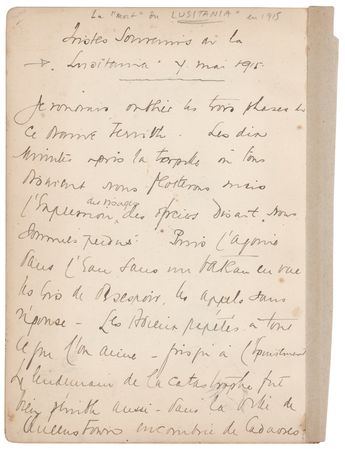 La "mort" du LUSITANIA en 1915
Tristes Souvenirs de la
"Lusitania" 7 mai 1915
Je n'oublie les trois phases de
ce drame terrible. Les dix
minutes après la torpille où tous
disaient nous flotterons mais
l'Explosion, des officiers disant, nous
sommes perdus! Puis l'agonie
dans l'Eau sans un bateau en vue
les cris de désespoir, les appels sans
réponse - Les adieux répétés à tous
ce que l'on aime - jusqu'à l'épuisement
Le lendemain de la catastrophe fut
bien pénible aussi - dans la ville de
Queenstown encombrée de Cadavres